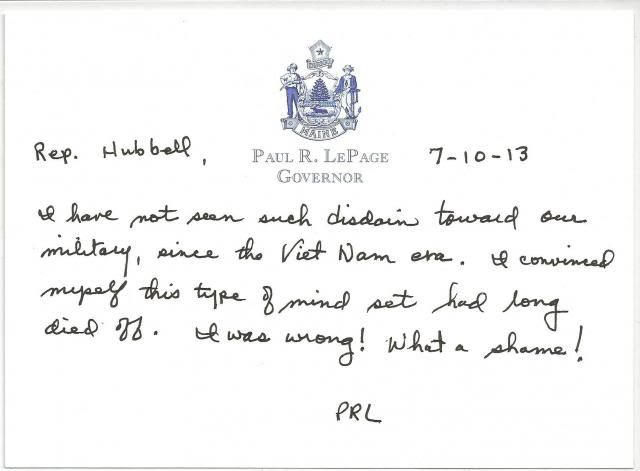 MAINE
Rep. Hubbell,
PAUL R. LEPAGE
GOVERNOR
7-10-13
I have not seen such disdain toward our
military, since the Viet Nam era. I convinced
myself this type of mind set had long
died off. I was wrong! What a shame!
PRL